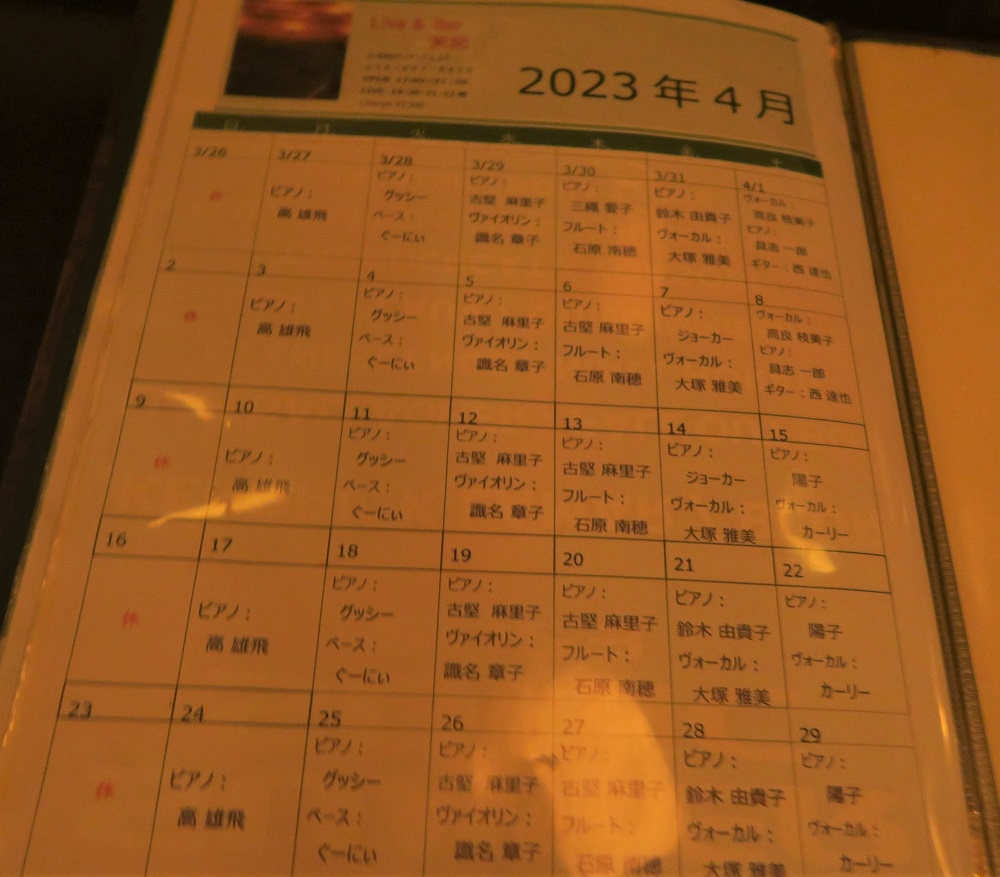 Live & Bar
2023 年 4 月
日 月 火 水 木 金 土
3/26 3/27 3/28 3/29 3/30 3/31 4/1
休
ピアノ：
高 雄飛
ピアノ：
グッシー
ベース：
ぐーにぃ
ピアノ：
古堅 麻里子
ヴァイオリン：
識名 章子
ピアノ：
三縄 愛子
フルート：
石原 南穂
ピアノ：
鈴木 由貴子
ヴォーカル：
大塚 雅美
ヴォーカル：
高良 枝美子
ピアノ：
具志 一郎
ギター：西 達也
2 3 4 5 6 7 8
休
ピアノ：
高 雄飛
ピアノ：
グッシー
ベース：
ぐーにぃ
ピアノ：
古堅 麻里子
ヴァイオリン：
識名 章子
ピアノ：
古堅 麻里子
フルート：
石原 南穂
ピアノ：
ジョーカー
ヴォーカル：
大塚 雅美
ヴォーカル：
高良 枝美子
ピアノ：
具志 一郎
ギター：西 達也
9 10 11 12 13 14 15
休
ピアノ：
高 雄飛
ピアノ：
グッシー
ベース：
ぐーにぃ
ピアノ：
古堅 麻里子
ヴァイオリン：
識名 章子
ピアノ：
古堅 麻里子
フルート：
石原 南穂
ピアノ：
ジョーカー
ヴォーカル：
大塚 雅美
ピアノ：
陽子
ヴォーカル：
カーリー
16 17 18 19 20 21 22
休
ピアノ：
高 雄飛
ピアノ：
グッシー
ベース：
ぐーにぃ
ピアノ：
古堅 麻里子
ヴァイオリン：
識名 章子
ピアノ：
古堅 麻里子
フルート：
石原 南穂
ピアノ：
鈴木 由貴子
ヴォーカル：
大塚 雅美
ピアノ：
陽子
ヴォーカル：
カーリー
23 24 25 26 27 28 29
休
ピアノ：
高 雄飛
ピアノ：
グッシー
ベース：
ぐーにぃ
ピアノ：
古堅 麻里子
ヴァイオリン：
識名 章子
ピアノ：
古堅 麻里子
フルート：
石原 南穂
ピアノ：
鈴木 由貴子
ヴォーカル：
大塚 雅美
ピアノ：
陽子
ヴォーカル：
カーリー